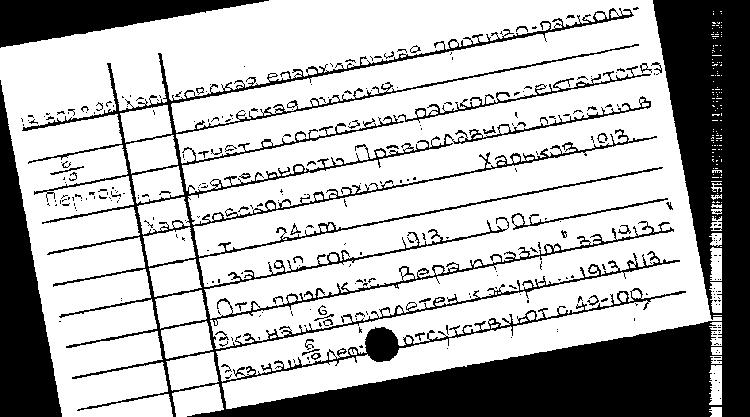 Харьковская епархиальная противо-расколь-
ническая миссия.
Отчет о состоянии расколо-сектантства
и о деятельности Православной миссии в
Харьковской епархии... Харьков, 1913.
т. 24 см.
... за 1912 год. 1913. 100 с.
Отд. прил. к ж. „Вера и разум" за 1913 г.
Экз. на ш 6/19 приплетен к журн. ... 1913, №13.
Экз. на ш 6/19 отсутствуют с. 49-100.
6/19
Период.